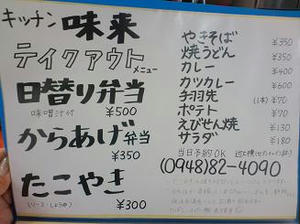 キッチン 味来
テイクアウト
メニュー
日替り弁当
味噌汁付 ¥500
からあげ弁当
¥350
たこやき
¥300
やきそば ¥350
焼うどん ¥350
カレー ¥400
カツカレー ¥600
手羽先 (1本) ¥70
ポテト ¥70
えびせん焼 ¥130
サラダ ¥180
当日予約OK
(0948)82-4090